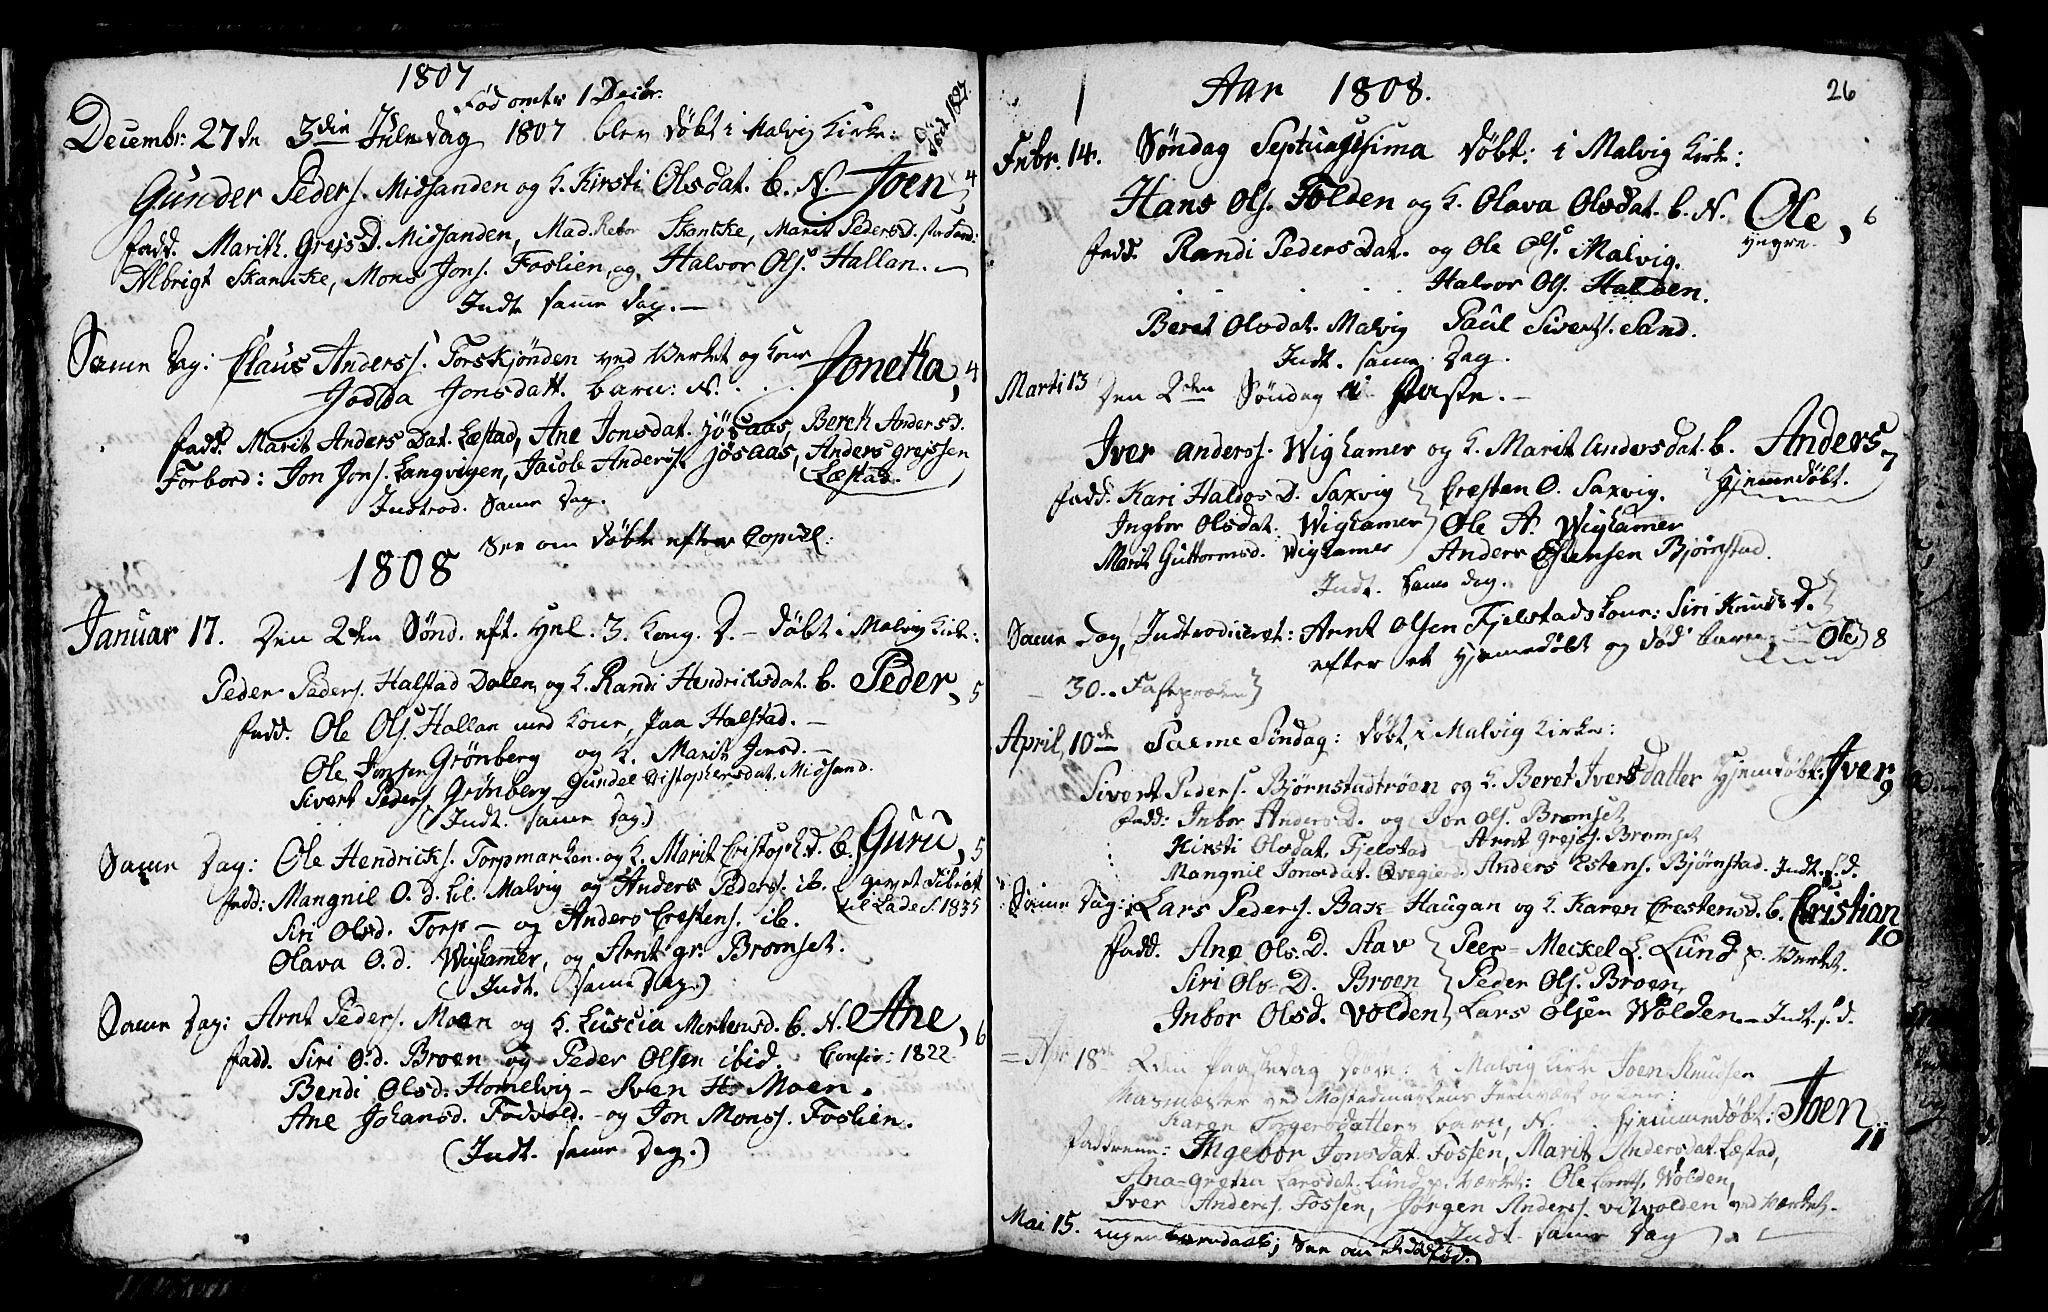 1807
Fød omtr 1 Decbr.
Død 1827.
Decembr: 27de 3die Juledag 1807 blev døbt i Malvig Kirke:
Gunder Peders. Midsanden og K. Kirsti Olsdat. b. N. Joen 4
fadd. Marith. GrejsD. Midsanden, Mad. Skancke, Marit Pedersd.
Albrigt Skancke, Mons Jons. Foslien, og Halvor Ols. Hallan.
Indt. samme dag.
Samme Dag: Claus Anderss. Torskjønden ved Verket og Kone Jonetta, 4
Jodda Jonsdatt. barn: N.
fadd. Marit AndersDat. Læstad, Ane Jonsdat. Jøsaas, Bereth Andersd.
Forbord: Jon Jons. Langvigen, Jacob Anders. Jøsaas, Anders Grejssen
Læstad.
Introd. Samme Dag.
See om døbte efter Copiel:
1808
Januar 17. Den 2den Sønd. eft. Hel. 3. Kong. D. - døbt i Malvig Kirke:
Peder Peders. Halstad Dalen og K. Randi Hendricksdat. b. Peder, 5
fadd. Ole Ols. Hallan med Kone, paa Halstad.
Ole Jonsen Grønberg og K. Marith Jonsd.
Sivert Peders. Grønberg Gundel Cristophersdat. Midsand.
(Indt. samme Dag.)
Samme Dag: Ole Hendricks. Torpmarken og K. Marit Cristoph.D. b. Guru, 5
fadd: Mangnil O.d. lil. Malvig og Anders Peders. ib. Gevet
til Lade 1835
Siri Olsd. Torp - og Anders Crestens. ib.
Olava O.d. Wighamer, og Arnt gr. Bromset.
(Indt. samme Dag.)
Samme Dag: Arnt Peders. Moen og K. Luscia Mortensd. b. N. Ane, 6
fadd. Siri O.d. Broen og Peder Olsen ibid. Confir: 1822
Bendi Olsd. Homelvig - Sven H. Moen.
Ane Johansd. Fodvold. - og Jon Monss. Foslien.
(Indt. samme Dag.)
Aar 1808.
26
Febr. 14. Søndag Septuagesima døbt: i Malvig Kirke:
Hans Ols. Folden og K. Olava Olsdat. b. N. Ole, 6
Hegre.
fadd. Randi PedersDat. og Ole Ols. Malvig.
Halvor Ols. Halden.
Beret Olsdat. Malvig Paul Siverts. Sand.
Indt. samme Dag.
Marti 13 Den 2den Søndag i Faste.
Iver Anderss. Wighamer og K. Marit Andersdat. b. Anders 7
Hjemedøbt.
fadd. Kari Haldos D. Saxvig Cresten O. Saxvig.
Ingbor Olsdat. Wighamer Ole A. Wighamer
Marit Guttormsd. Wighamer Anders Estensen Bjørnstad.
Indt. samme dag.
Samme Dag, Indtroduceret: Arnt Olsen Fjelstads Kone: Siri KnudsD.
efter et Hjemedøbt og død barn Ole 8
- 30. Fastepræken
April, 10de Palme Søndag: døbt, i Malvig Kirke:
Sivert Peders. Bjørnstadtrøen og K. Beret Iversdatter Hjemdøbt: Iver 9
fadd: Inbor AndersD. og Jon Ols. Bromset
Kirsti Olsdat. Fjelstad Arnt Grejs. Bromset
Mangnil Jonsdat. Anders Estens. Bjørnstad. Indt. s.d.
Samme Dag: Lars Peders. Bak-Haugan og K. Karen Crestensd. b. Cristian 10
fadd. Ane Ols.D. Stav Peer-Meckel L. Lund p. Verket.
Siri Ols-D. Broen Peder Ols. Broen,
Inbor Olsd. Volden, Lars Olsen Wolden. - Indt. s.d.
Apr 18de 2den Paaskedag døbt: i Malvig Kirke Joen Knudsen
Masmester ved Mostadmarkens Jernværk og Kone:
Karen Torgersdatters barn, N. hjemmedøbt: Joen 11
faddrene: Ingebor Jonsdat. Fossen, Marit Andersdat. Læstad,
Ana-gretha Larsdat. Lund p. Verket: Ole Lorents. Wolden,
Iver Anders. Fossen, Jørgen Anders. Vitvolden ved Værket.
Indt. samme Dag
Mai 15. ingen barndaab; See om et død fød.